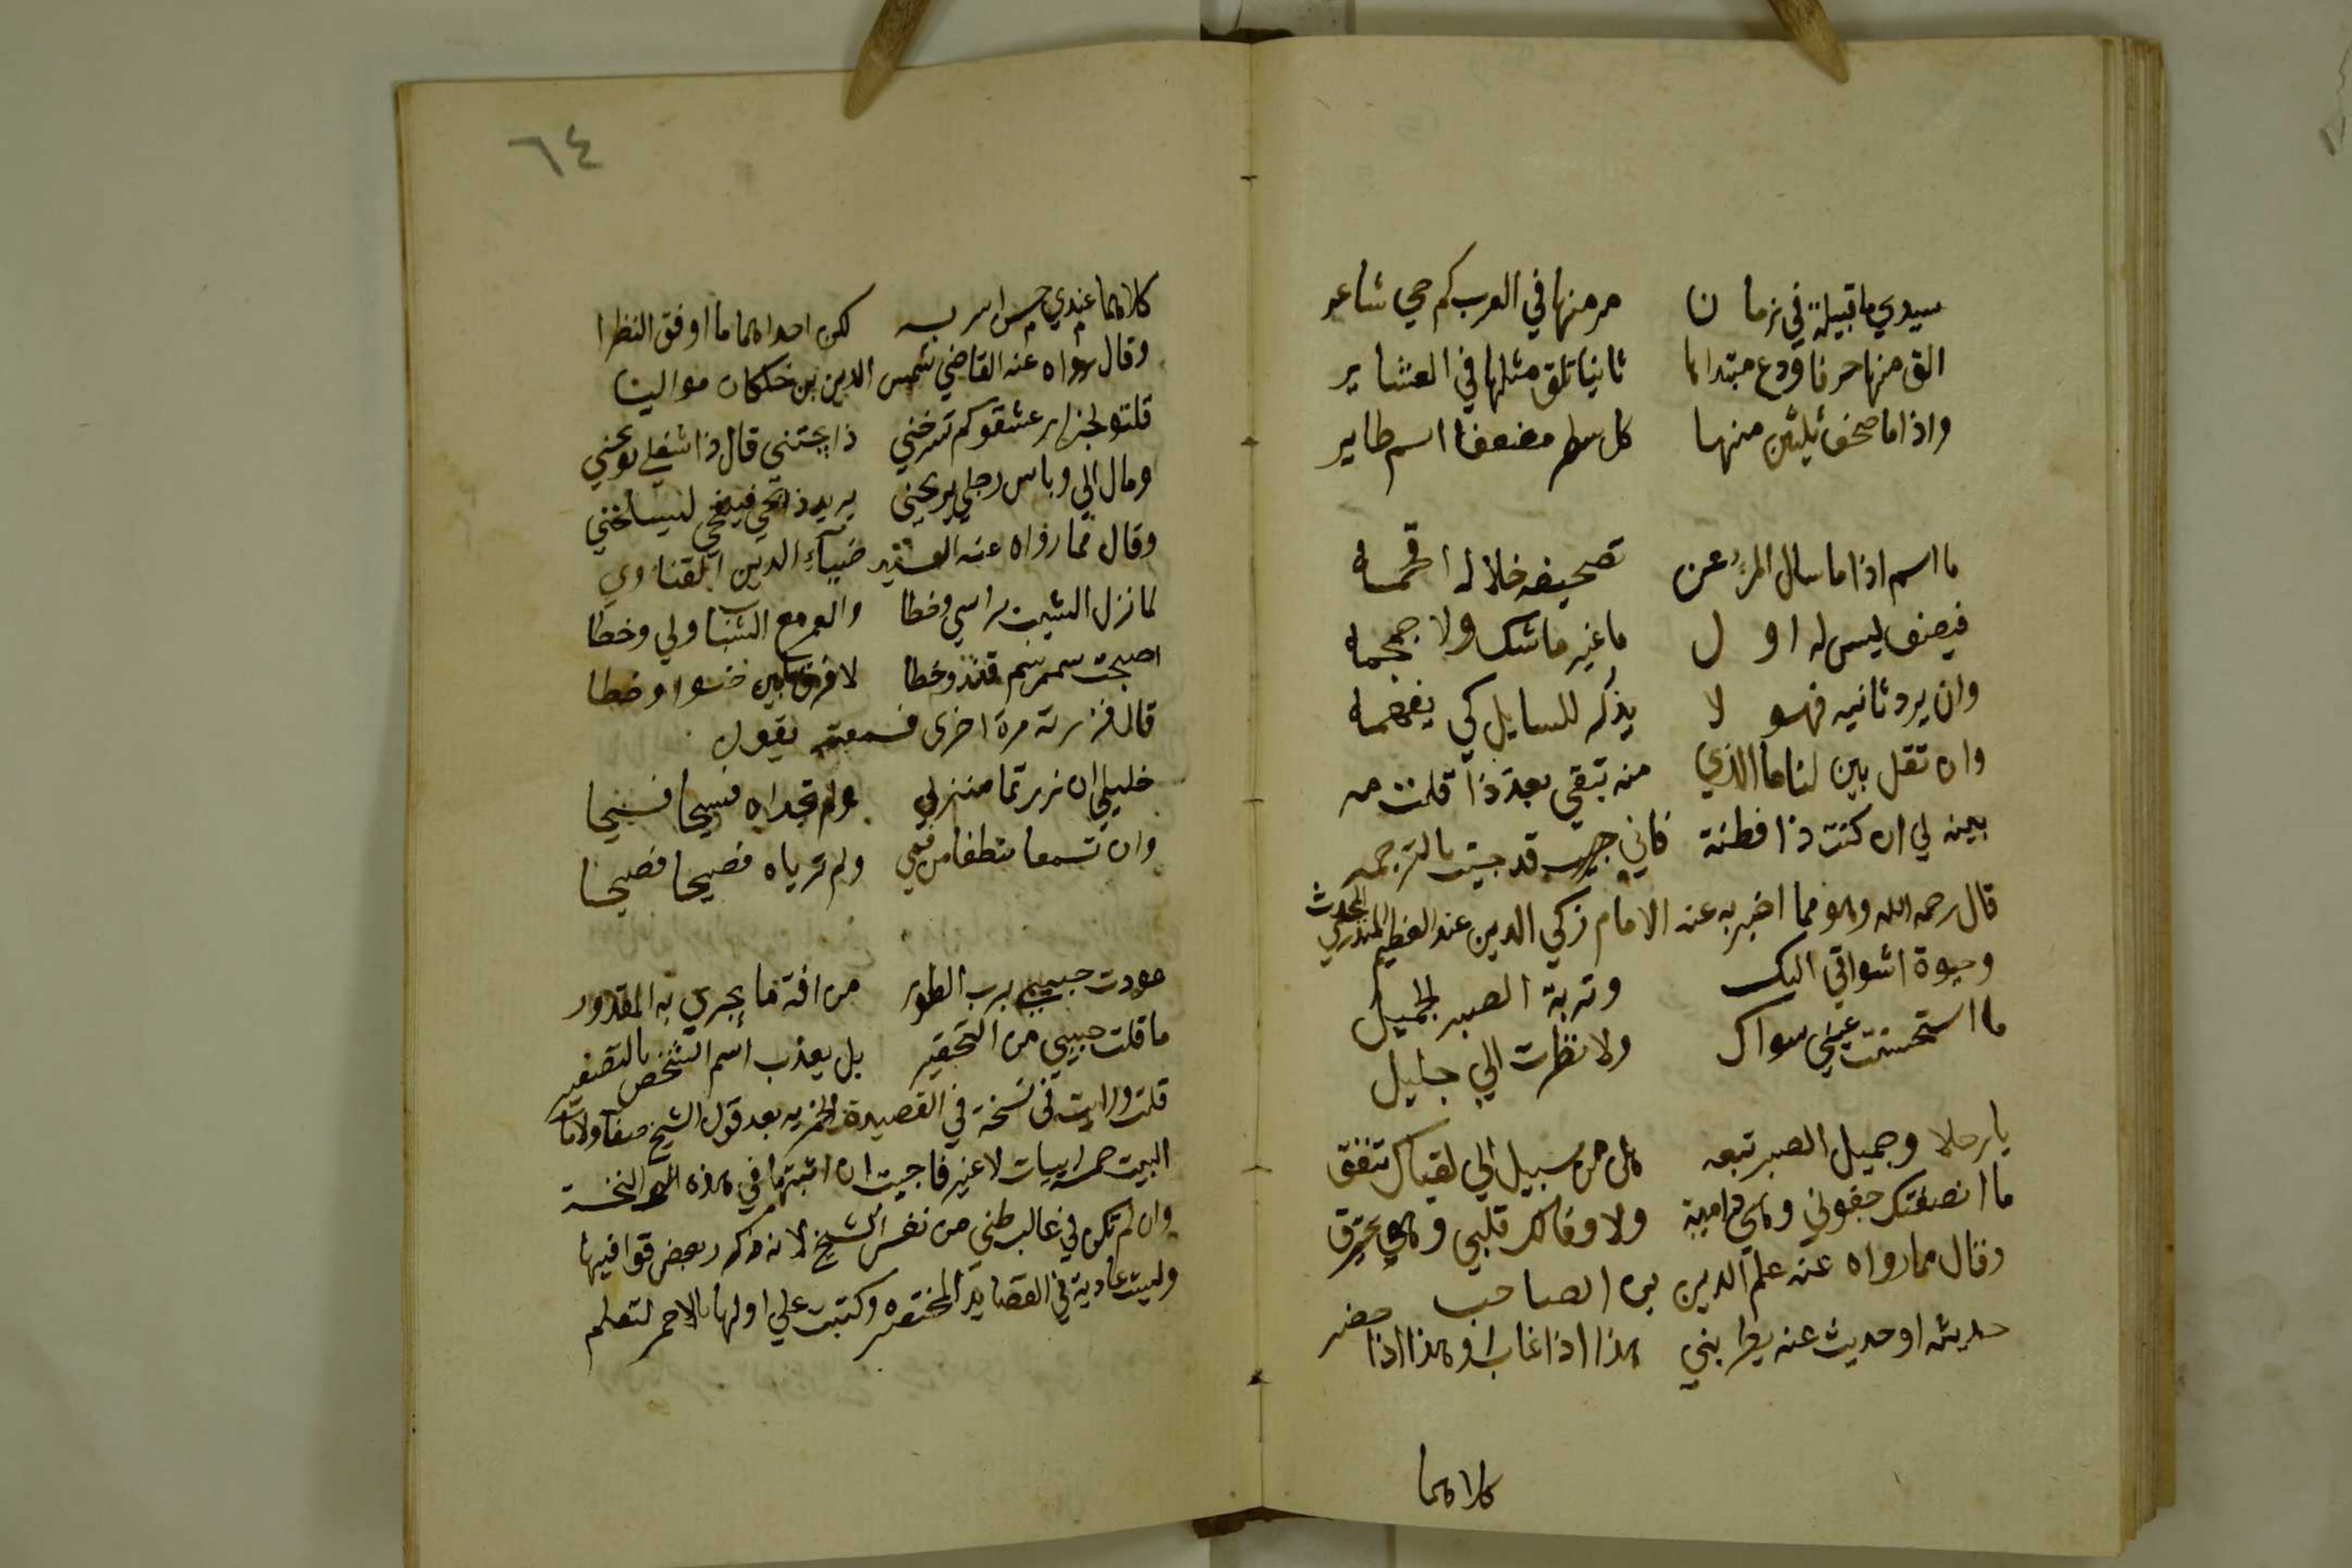 سيدي ما قبيلة في زمان مر منها في العرب كم حي شاعر
الق منها حرفا ودع مبتداها ثانيا تلق مثلها في العشاير
واذا ما صحف ثلثين منها كل شطر مضعفا اسم طاير
ما اسم اذا ما سال المرء عن تصحيفه خلا له افحمه
فنصف ليس له اول ما غير ما شك ولا جمجمه
وان يرد ثانيه فهو لا يذكر للسايل كي يفهمه
وان تقل بين لنا ما الذي منه تبقى بعد ذا قلت مه
بينه لي ان كنت ذا فطنة فاني قد جيت بالترجمه
قال رحمه الله وهو مما اخبر به عنه الامام زكي الدين عبد العظيم المنذري المحدث
وحيوة اشواقي اليك وتربة الصبر الجميل
ما استحسنت عيني سواك ولا نظرت الي جليل
يا رحلا وجميل الصبر تبعه هل من سبيل الي لقياك تتفق
ما انصفتك جفوني وهي دامية ولا وفا لك قلبي وهو يحترق
وقال مما رواه عنه علم الدين بن الصاحب
حديثه او حديث عنه يطربني هذا اذا غاب او هذا اذا حضر
كلاهما
٦٤
كلاهما عندي حسن اسر به لكن احداهما ما اوفق النظرا
وقال رواه عنه القاضي شمس الدين بن خلكان مواليا
قلتو لجزار عشقتو كم تشرحني ذابحتني قال ذا شغلي توبخني
ومال الي وباس رجلي يربخني يريد ذبحي فينفخني ليسلخني
وقال مما رواه عنه الفقير ضياء الدين القناوي
لما نزل الشيب براسي وخطا والعمر مع الشباب ولي وخطا
اصبحت بسمر سمرقند وخطا لا افرق ما بين صواب وخطا
قال فزرته مرة اخرى فسمعته يقول
خليلي ان زرتما منزلي ولم تجداه فسيحا فسيحا
وان تسمعا منطقا من فمي ولم ترياه فصيحا فصيحا
عوذت حبيبي برب الطور من افة ما يجري به المقدور
ما قلت حبيبي من التحقير بل يعذب اسم الشخص بالتصغير
قلت ورايت في نسخة في القصيدة الخمرية بعد قول الشيخ صفا ولا ما
البيت خمس ابيات لا غير فاجبت ان اثبتها في هذه النسخة
وان لم تكن في غالب ظني من نفس الشيخ لانه ذكر بعض قوافيها
وليست عادية في القصايد المختصره وكتبت علي اولها بالاحمر لتعلم